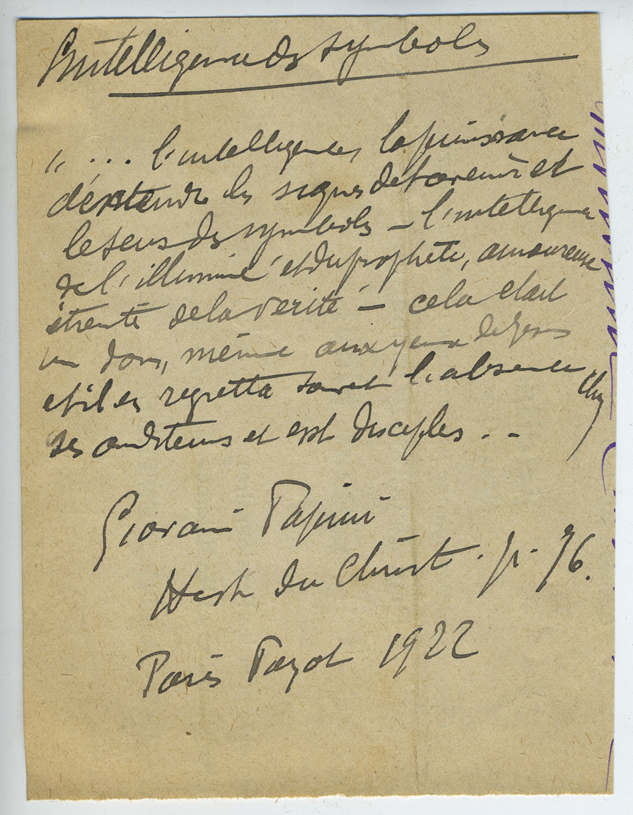 L'intelligence des symbols
"... l'intelligence, la puissance
d'entendre les signes de l'avenir et
le sens des symbols – l'intelligence
de l'illuminé et du prophète, amoureuse
étreinte de la verité – cela était
un don, même aux yeux de Jesus
et il en regretta souvent l'absence chez
ses auditeurs et ses disciples . –
Giovani Papini
Hist du Christ . p. 76.
Paris Payot 1922